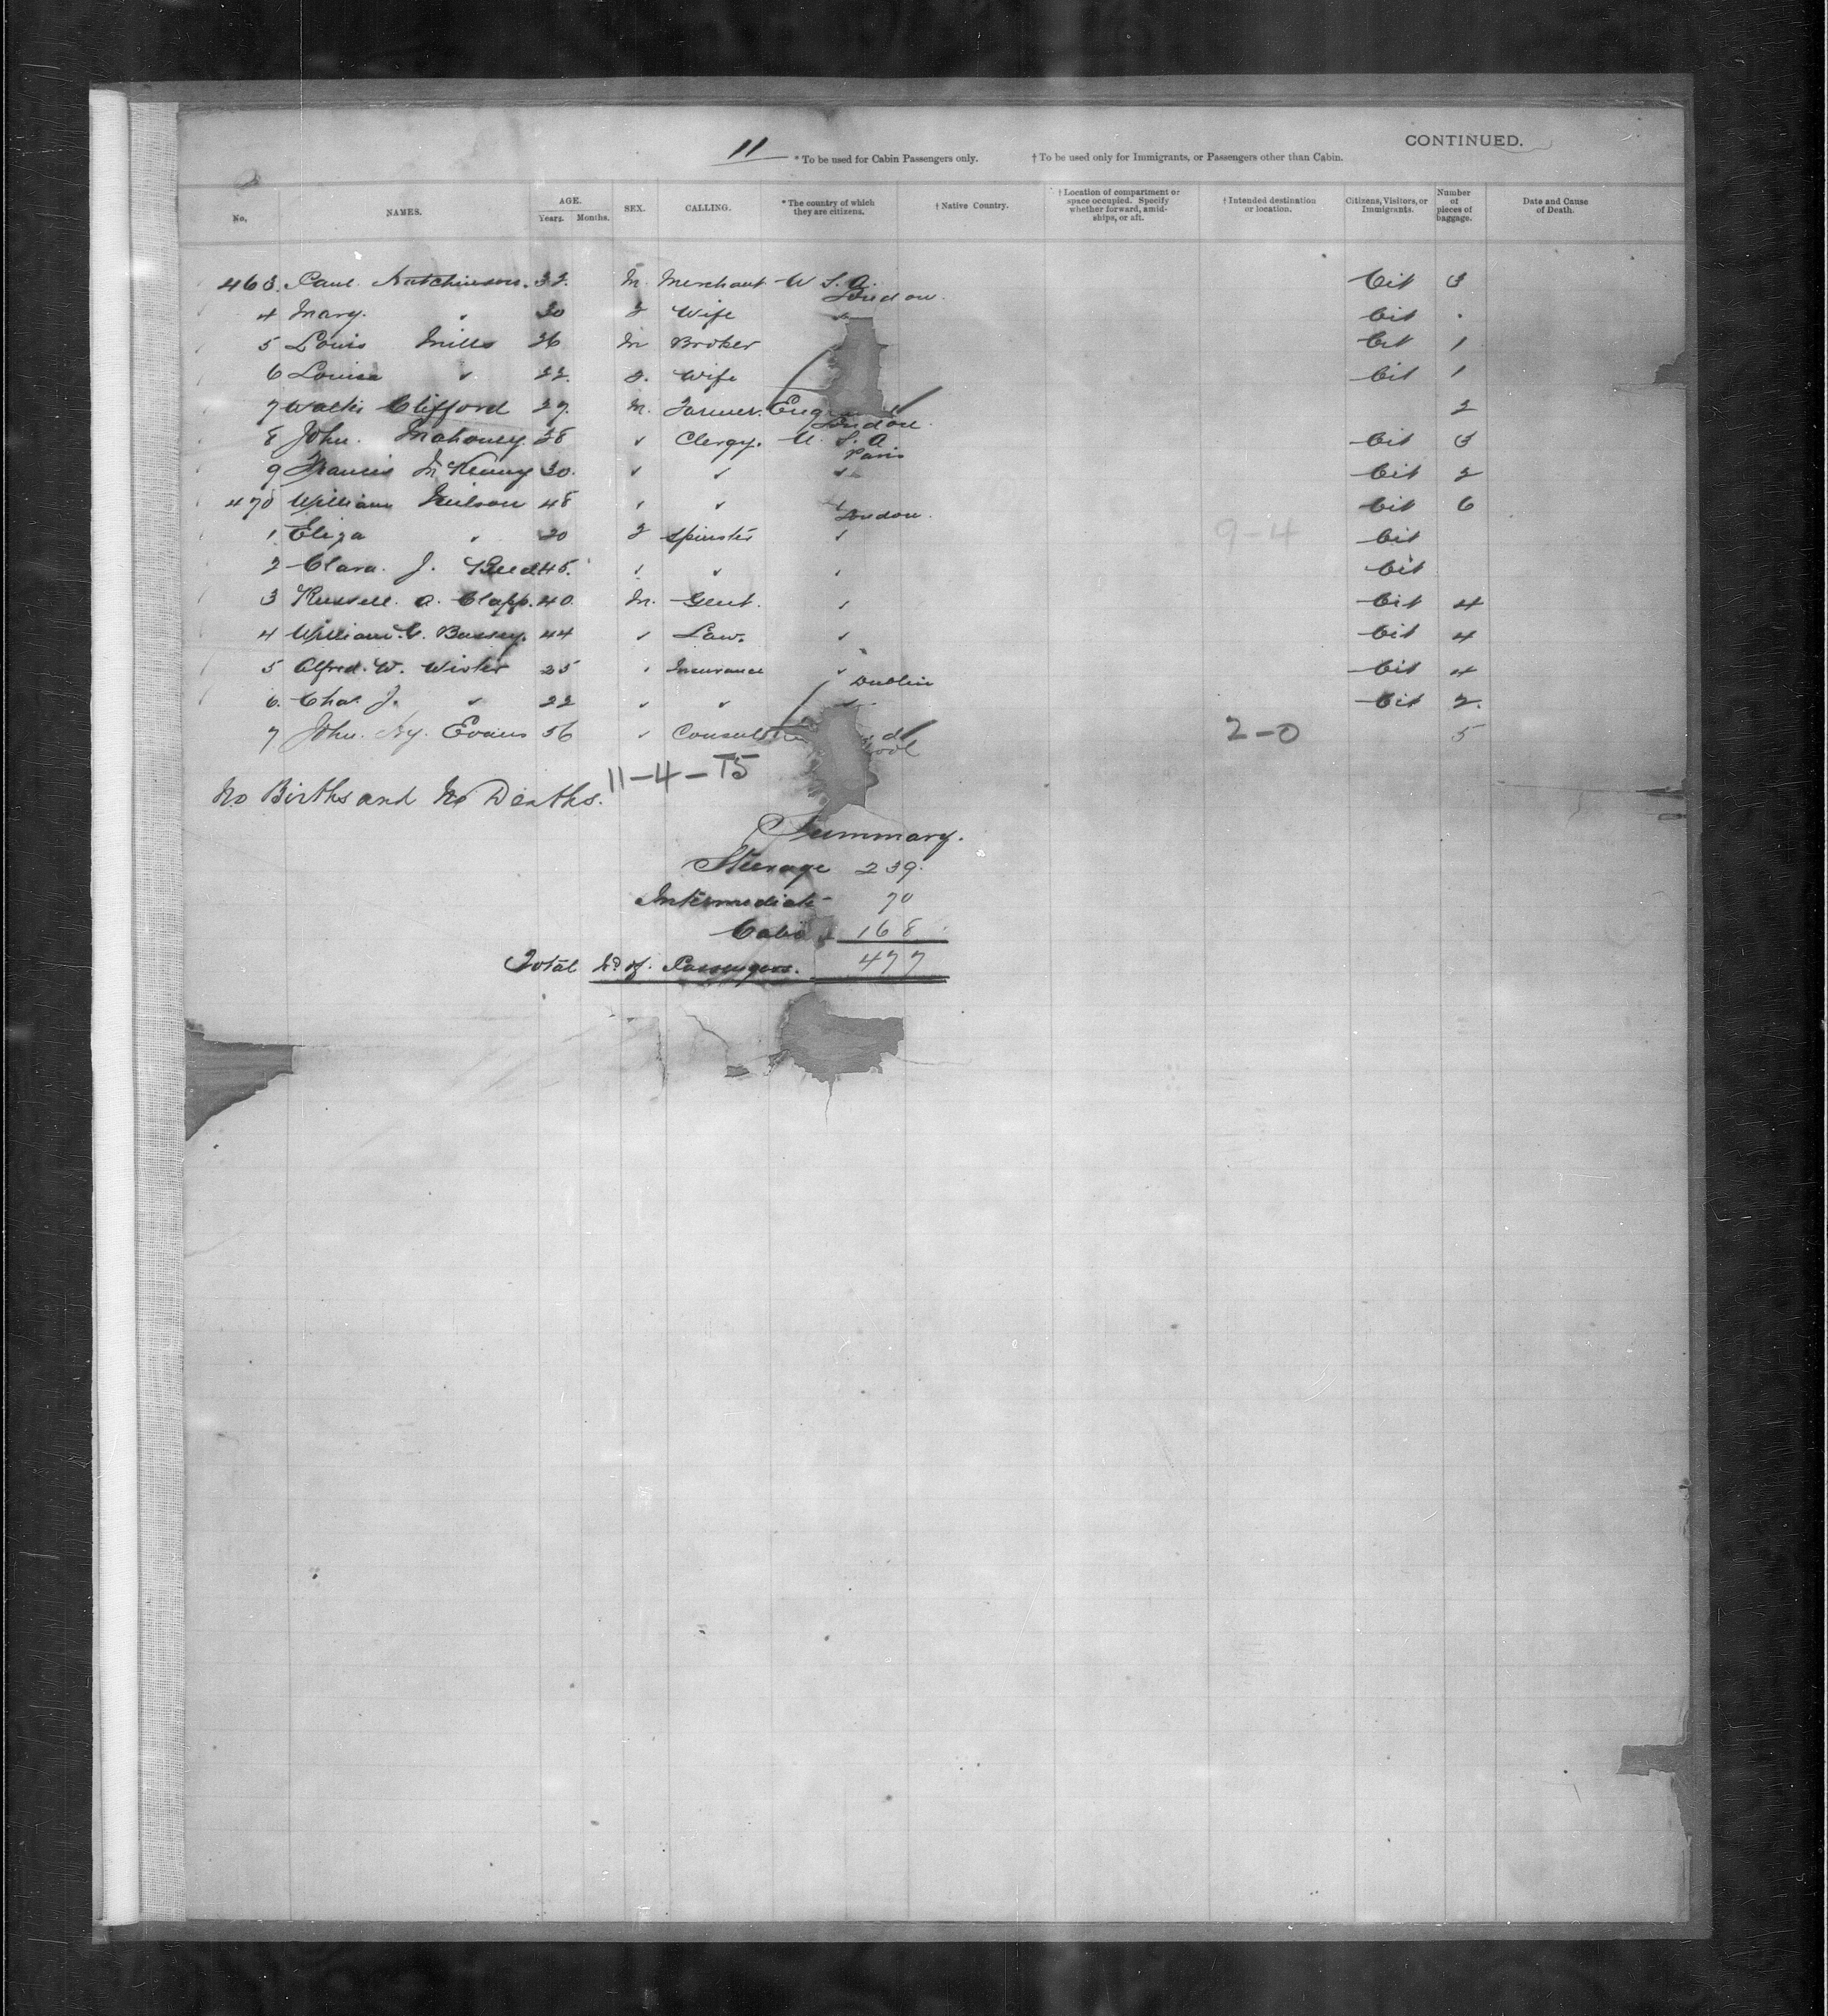 11 * To be used for Cabin Passengers only. † To be used only for Immigrants, or Passengers other than Cabin. CONTINUED.
No. NAMES. AGE. Years. Months. SEX. CALLING. * The country of which they are citizens. † Native Country. † Location of compartment or space occupied. Specify whether forward, amidships, or aft. † Intended destination or location. Citizens, Visitors, or Immigrants. Number of pieces of baggage. Date and Cause of Death.
463. Paul Hutchinson. 33. M. Merchant U S. A. Cit 3
London.
4 Mary. " 30 F Wife " Cit .
5 Louis Mills 26 M Broker Cit 1
6 Louisa " 22. F. Wife Cit 1
7 Clifford 27. M. Farmer. 2
London.
8 John. Mahoney. 38 " Clergy. U. S. A Cit 3
Paris
9 Francis McKenny 30. " " " Cit 2
470 William 48 " " Cit 6
London.
1 Eliza " 20 F Spinster " 9-4 Cit
2 Clara. J. 45. " " " Cit
3 Russell. A. Clapp. 40. M. Gent. " Cit 4
4 William. 44 " Law. " Cit 4
5 Alfred. W. Wister 25 " Insurance " Cit 4
Dublin
6. Chas J. " 22 " " " Cit 2.
7 John. Hy. Evans 56 " 2-0 5
11-4-T5
No Births and No Deaths.
Summary.
Steerage 239.
Intermediate 70
Cabin 168
Total No of. Passengers. 477